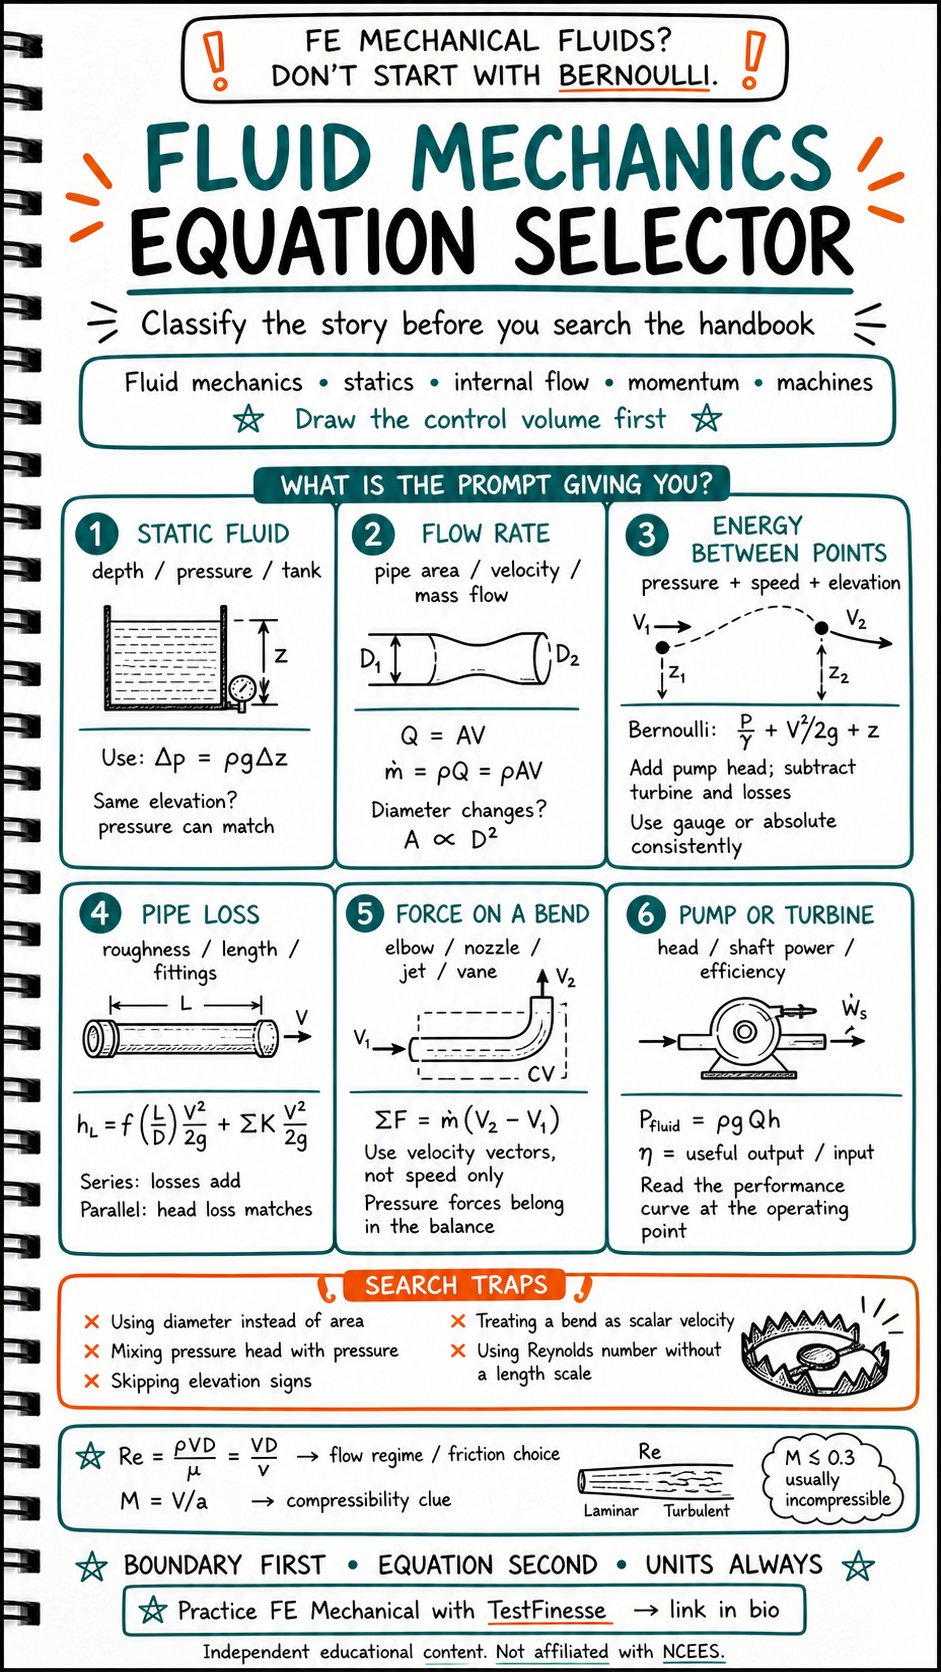 FE MECHANICAL FLUIDS?
DON'T START WITH BERNOULLI.
FLUID MECHANICS
EQUATION SELECTOR
Classify the story before you search the handbook
Fluid mechanics • statics • internal flow • momentum • machines
☆ Draw the control volume first ☆
WHAT IS THE PROMPT GIVING YOU?
1 STATIC FLUID
depth / pressure / tank
z
Use: Δp = ρgΔz
Same elevation?
pressure can match
2 FLOW RATE
pipe area / velocity /
mass flow
D₁
D₂
Q = AV
ṁ = ρQ = ρAV
Diameter changes?
A ∝ D²
3 ENERGY
BETWEEN POINTS
pressure + speed + elevation
V₁
V₂
z₁
z₂
Bernoulli: P/γ + V²/2g + z
Add pump head; subtract
turbine and losses
Use gauge or absolute
consistently
4 PIPE LOSS
roughness / length /
fittings
L
V
h_L = f (L/D) V²/2g + ΣK V²/2g
Series: losses add
Parallel: head loss matches
5 FORCE ON A BEND
elbow / nozzle /
jet / vane
V₂
V₁
CV
ΣF = ṁ (V₂ − V₁)
Use velocity vectors,
not speed only
Pressure forces belong
in the balance
6 PUMP OR TURBINE
head / shaft power /
efficiency
Ẇs
P_fluid = ρg Qh
η = useful output / input
Read the performance
curve at the operating
point
SEARCH TRAPS
× Using diameter instead of area
× Mixing pressure head with pressure
× Skipping elevation signs
× Treating a bend as scalar velocity
× Using Reynolds number without
a length scale
☆ Re = ρVD/μ = VD/ν → flow regime / friction choice
M = V/a → compressibility clue
Re
Laminar Turbulent
M ≤ 0.3
usually
incompressible
☆ BOUNDARY FIRST • EQUATION SECOND • UNITS ALWAYS ☆
☆ Practice FE Mechanical with TestFinesse → link in bio
Independent educational content. Not affiliated with NCEES.